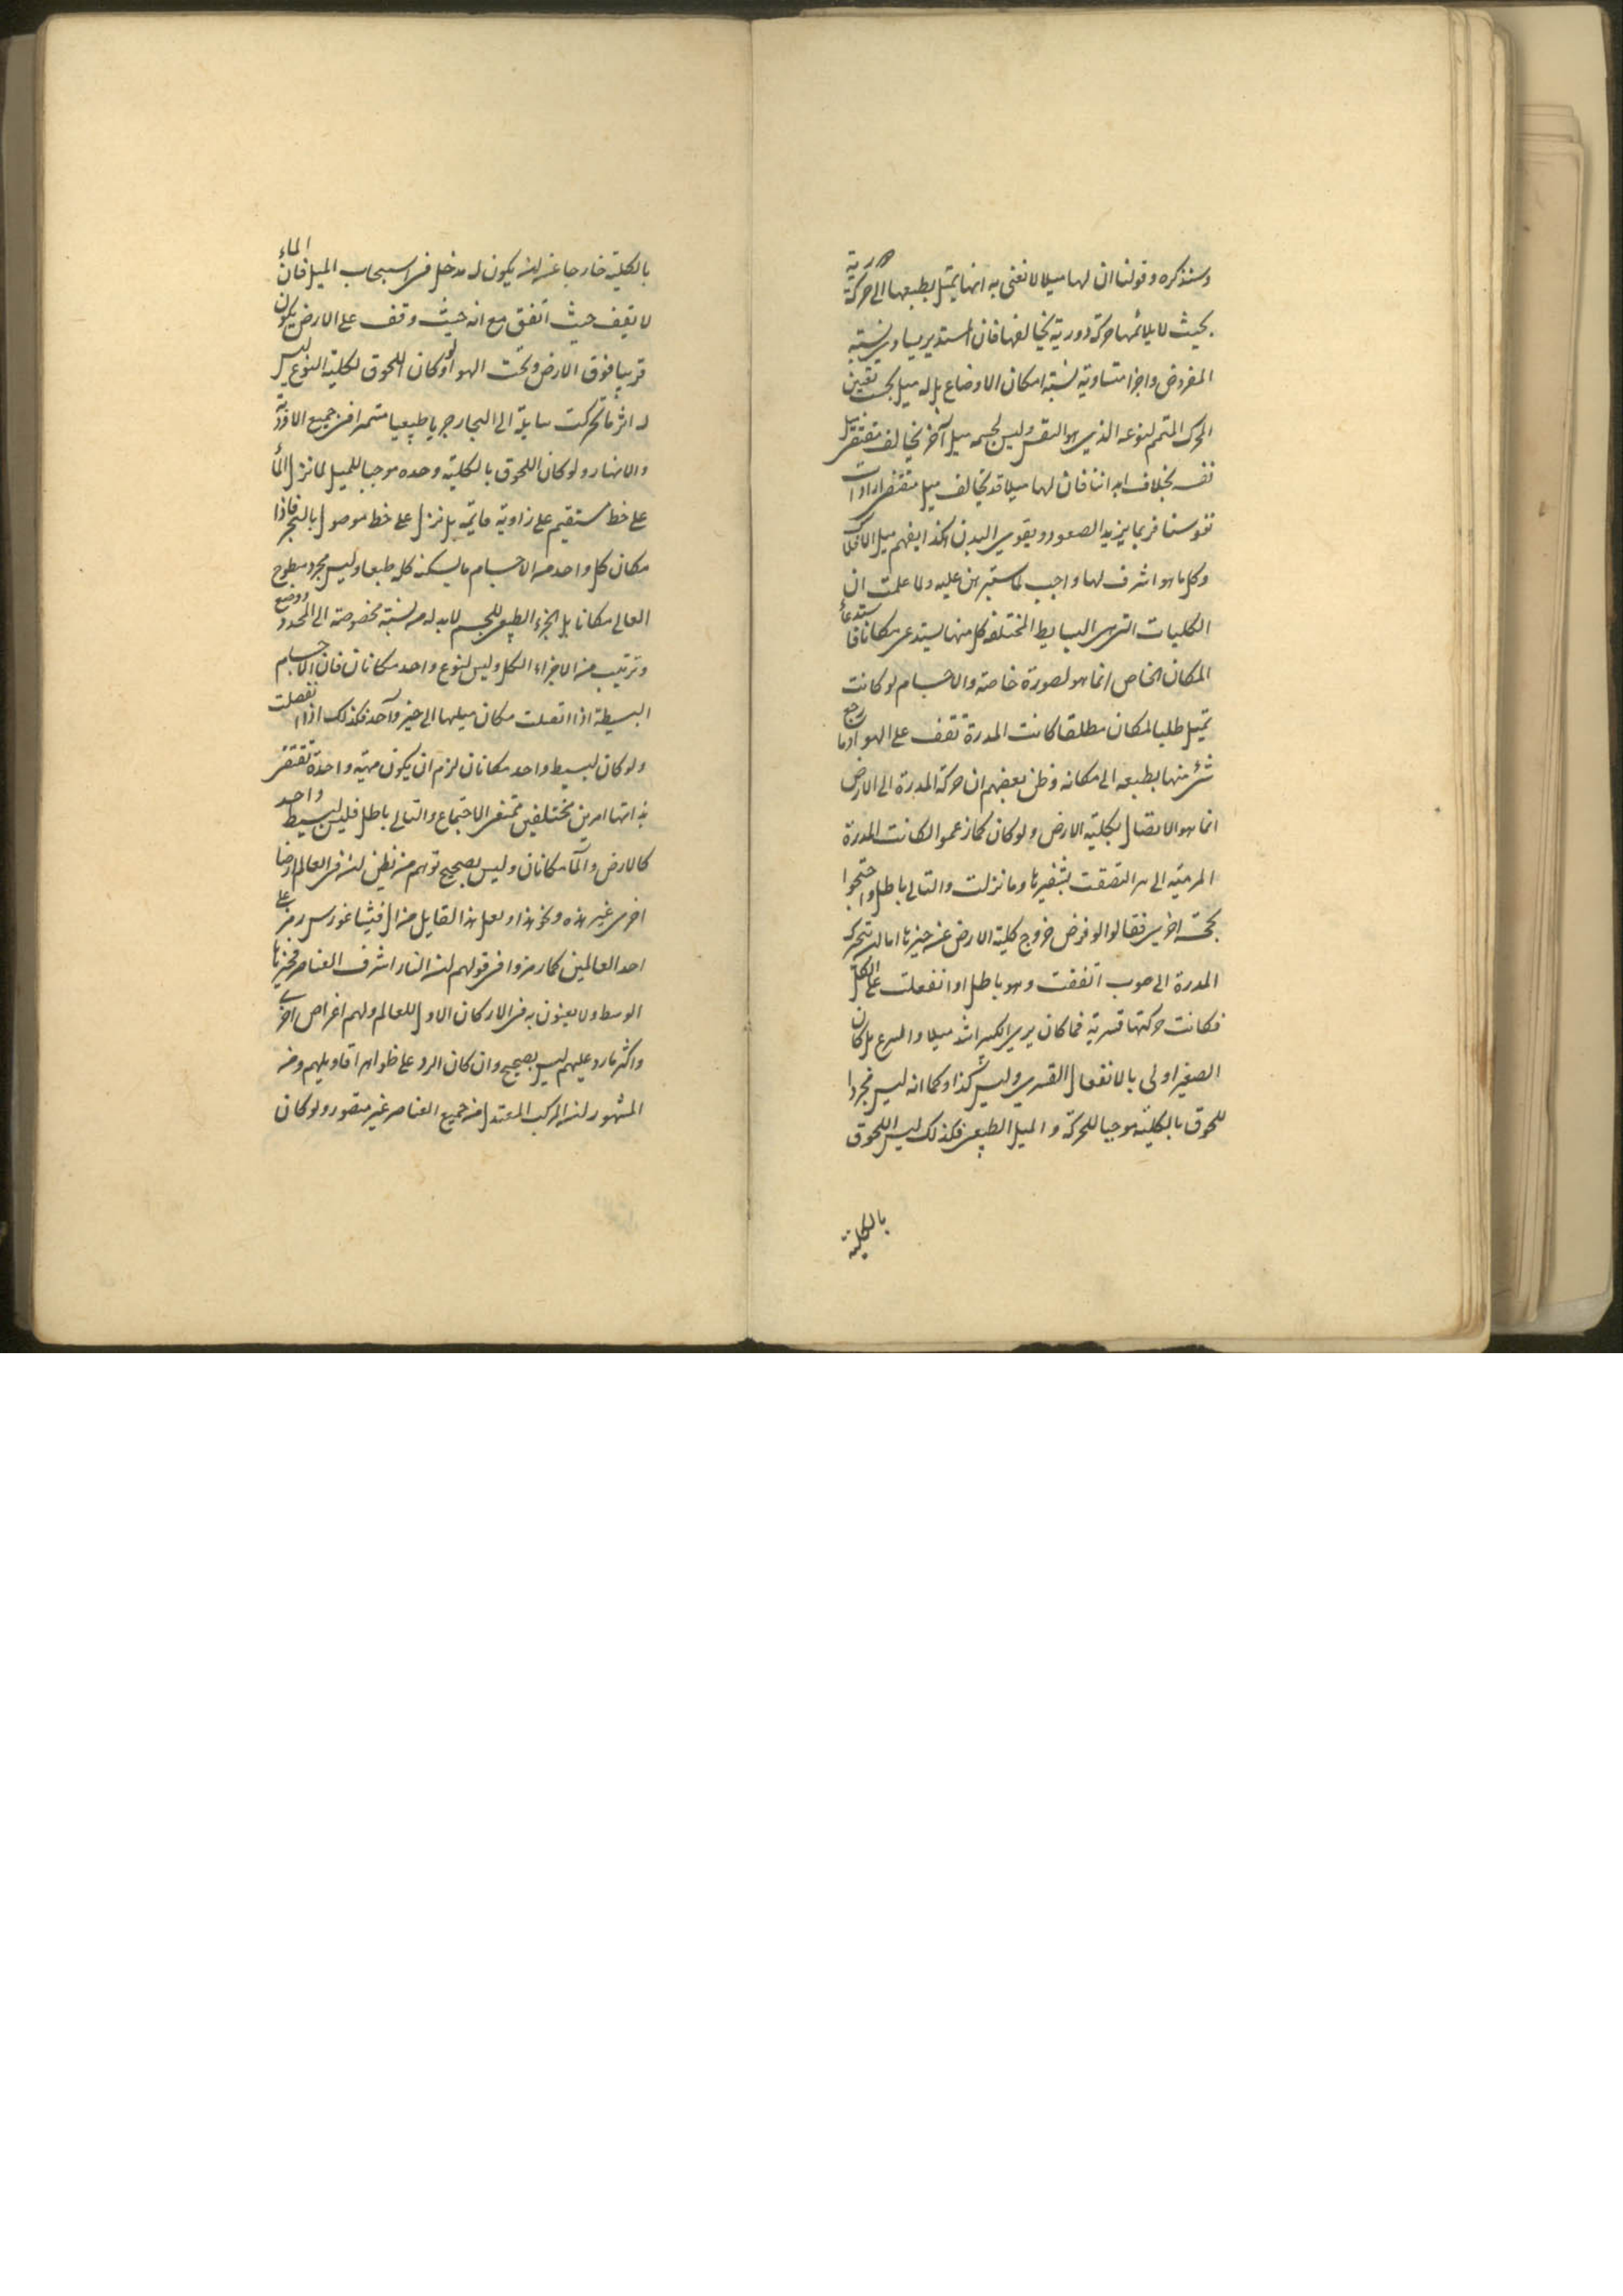 وسنذكره وقولنا ان لها ميلا لا نعنى به انها تميل بطبعها الى حركة دورية
بحيث لا يلائمها حركة دورية يخالفها فان المستدير يساوى نسبته
المفروض واجزا متساوية لنسبة امكان الاوضاع بل له ميل بحسب تعين
المحرك المتمم لنوعه الذى هو النفس وليس لجسمه ميل آخر يخالف مقتضى ميل
نفسه بخلاف ابداننا فان لها ميلا قد يخالف ميل مقتضى ارادات
نفوسنا فربما يزيد الصعود ويقوى البدن هكذا يفهم ميل الافلاك
وكل ما هو اشرف لها واجب لما ستبرهن عليه ولما علمت ان
الكليات التى هى البسايط المختلفة كل منها يستدعى مكانا فاستدعاء
المكان الخاص انما هو لصورة خاصة والاجسام لو كانت
تميل طلبا لمكان مطلقا كانت المدرة تقف على الهوا وما رجع
شئ منها بطبعه الى مكانه وظن بعضهم ان حركة المدرة الى الارض
انما هو الاتصال بكلية الارض ولو كان كما زعموا لكانت المدرة
المرمية الى بئر التصقت بشفيرها وما نزلت والتالى باطل واحتجوا
بحجة اخرى فقالوا لو فرض خروج كلية الارض عن حيزها اما ان تتحرك
المدرة الى صوب اتفقت وهو باطل او انفعلت عن الكل
فكانت حركتها قسرية فما كان يرى الكبير اشد ميلا واسرع بل كان
الصغير اولى بالانفعال القسرى وليس كذا وكما انه ليس مجردا
للحوق بالكلية موجبا للحركة والميل الطبيعى فكذلك ليس اللحوق
بالكلية
بالكلية خارجا عن ان يكون له مدخل فى استيجاب الميل فان الماء
لا يقف حيث اتفق مع انه حيث وقف على الارض يكون
قريبا فوق الارض وتحت الهوا ولو كان اللحوق لكلية النوع ليس
له اثر ما تحركت سايلة الى البحار جريا طبيعيا مستمرا من جميع الاودية
والانهار ولو كان اللحوق بالكلية وحده موجبا للميل لما نزل الماء
على خط مستقيم على زاوية قايمة بل نزل على خط موصول بالبحر فاذا
مكان كل واحد من الاجسام ما يسكنه كله طبعا وليس مجرد سطوح
العالى مكانا بل الجزء الطبيعى للجسم لابد له من نسبة مخصوصة الى المحدد ووضع
وترتيب من الاجزاء الكل وليس لنوع واحد مكانان فان الاجسام
البسيطة اذا اتصلت مكان ميلها الى حيز واحد فكذلك اذا انفصلت
ولو كان لبسيط واحد مكانان لزم ان يكون مهية واحدة تقتضى
بذاتها امرين مختلفين ممتنعى الاجتماع والتالى باطل فليس لبسيط واحد
كالارض والماء مكانان وليس بصحيح توهم من يظن ان فى العالم ارضا
اخرى غير هذه ونحو هذا ولعل هذا القايل من آل فيثاغورس رمز على
احد العالمين كما رمزوا فى قولهم ان النار اشرف العناصر فحيزها
الوسط ولا يعنون به من الاركان الاول للعالم ولهم اغراض اخرى
واكثر ما رد عليهم ليس بصحيح وان كان الرد على ظواهر اقاويلهم ومن
المشهور ان المركب المعتدل من جميع العناصر غير متصور ولو كان